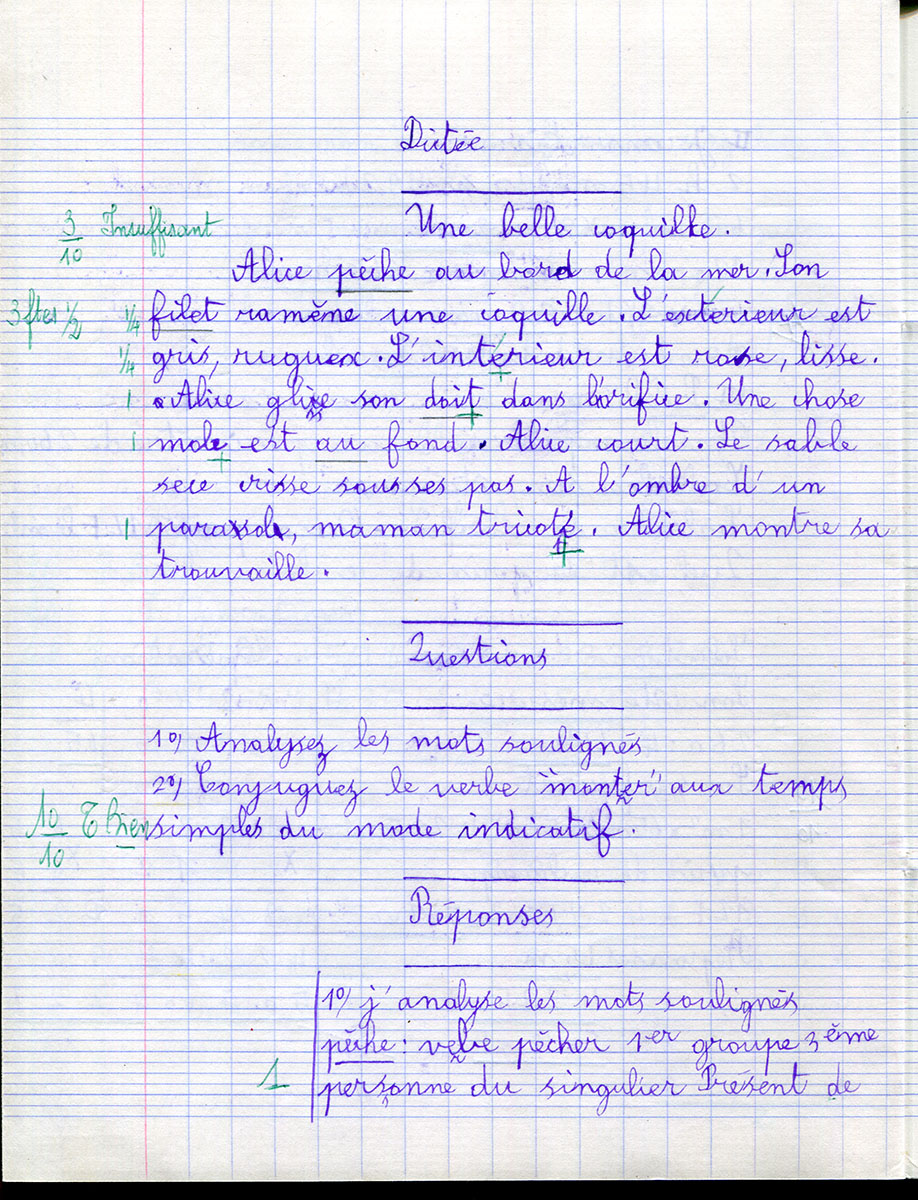 Dictée
3/10 Insuffisant
Une belle coquille.
Alice pêche au bord de la mer. Son
3 ftes 1/2 1/4 filet ramène une coquille. L'extérieur est
1/4 gris, ruguex. L'intérieur est rose, lisse.
1 Alice glisse son doit dans l'orifice. Une chose
1 mole est au fond. Alice court. Le sable
sece crisse sousses pas. A l'ombre d'un
1 parasol, maman tricoté. Alice montre sa
trouvaille.
Questions
1º) Analysez les mots soulignés
2º) Conjuguez le verbe "monter" aux temps
10/10 T Bien simples du mode indicatif.
Réponses
1º) j'analyse les mots soulignés
pêche : velbe pêcher 1er groupe 3ème
1 personne du singulier Présent de